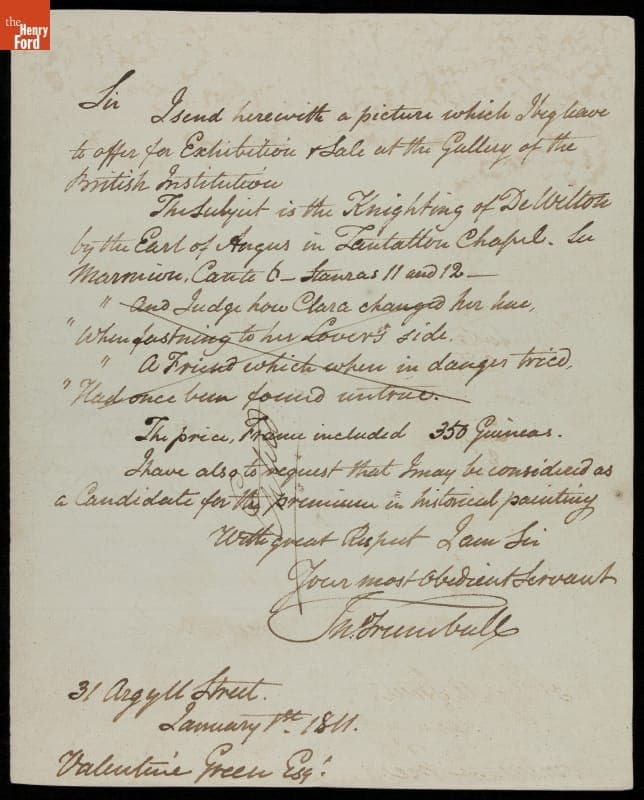 the
Henry
Ford
Sir I send herewith a picture which I beg leave
to offer for Exhibition & Sale at the Gallery of the
British Institution
The Subject is the Knighting of De Wilton
by the Earl of Angus in Tantallon Chapel. See
Marmion, Canto 6 — Stanzas 11 and 12 —
" And Judge how Clara changed her hue,
" When fastning to her Lover's side,
" A Friend which when in danger tried,
" Had once been found untrue.
The price, Frame included 350 Guineas.
I have also to request that I may be considered as
a Candidate for the premium in historical painting
With great Respect I am Sir
Your most Obedient Servant
Jn° Trumbull
31 Argyll Street.
January 1st 1811.
Valentine Green Esqr